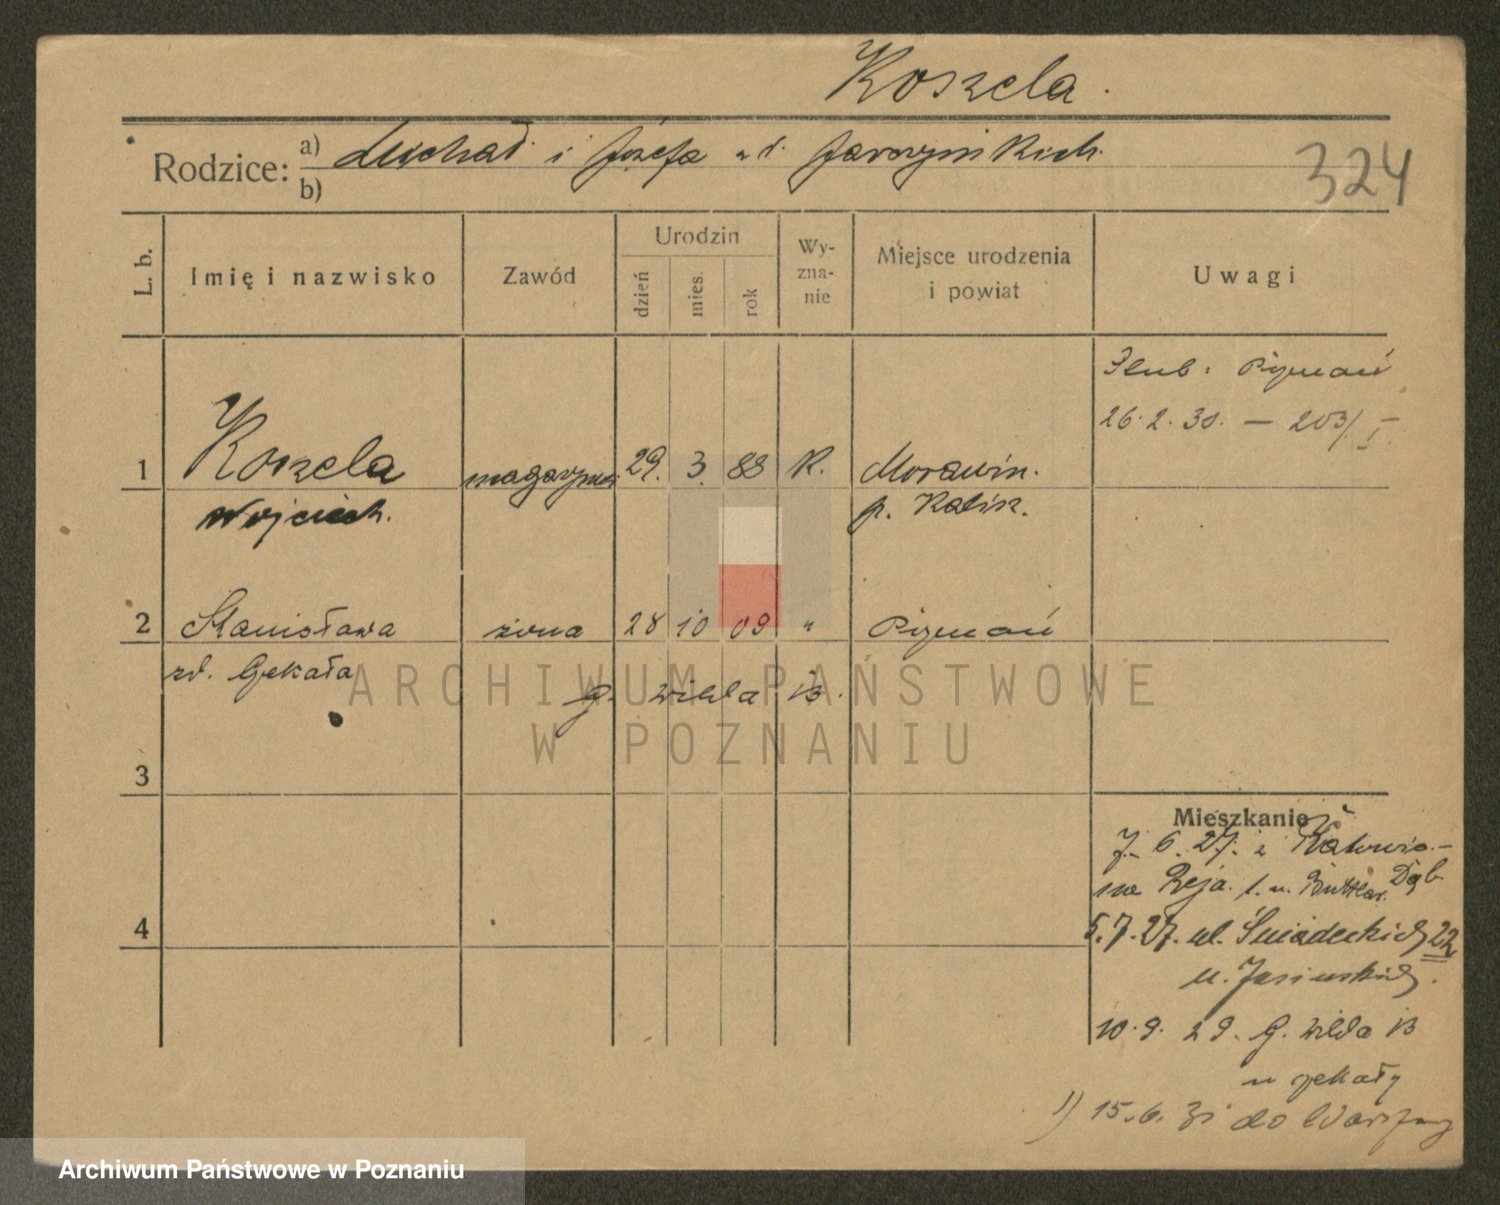 Koszela.
Rodzice: a) Michał i Józefa z d. Jarczyńskich.
b)
324
L. b. Imię i nazwisko Zawód Urodzin dzień mies. rok Wy-zna-nie Miejsce urodzenia i powiat Uwagi
Ślub: Poznań
26.2.30. — 203/I.
1 Koszela 29. 3. 88 K. Morawin.
Wojciech. p. Kalisz.
2 Stanisława żona 28 10 09 " Poznań
zd. Gekała G. Wilda 13.
3
Mieszkanie
7. 6. 27. z Katowic.
Reja. 1. u. Buttlar.
4
5.7.27. ul. Śniadeckich 22
u. Jasińskich.
10.9.29. G. Wilda 13
u Gekały
1) 15.6.31 do Warszawy
ARCHIWUM PAŃSTWOWE
W POZNANIU
Archiwum Państwowe w Poznaniu